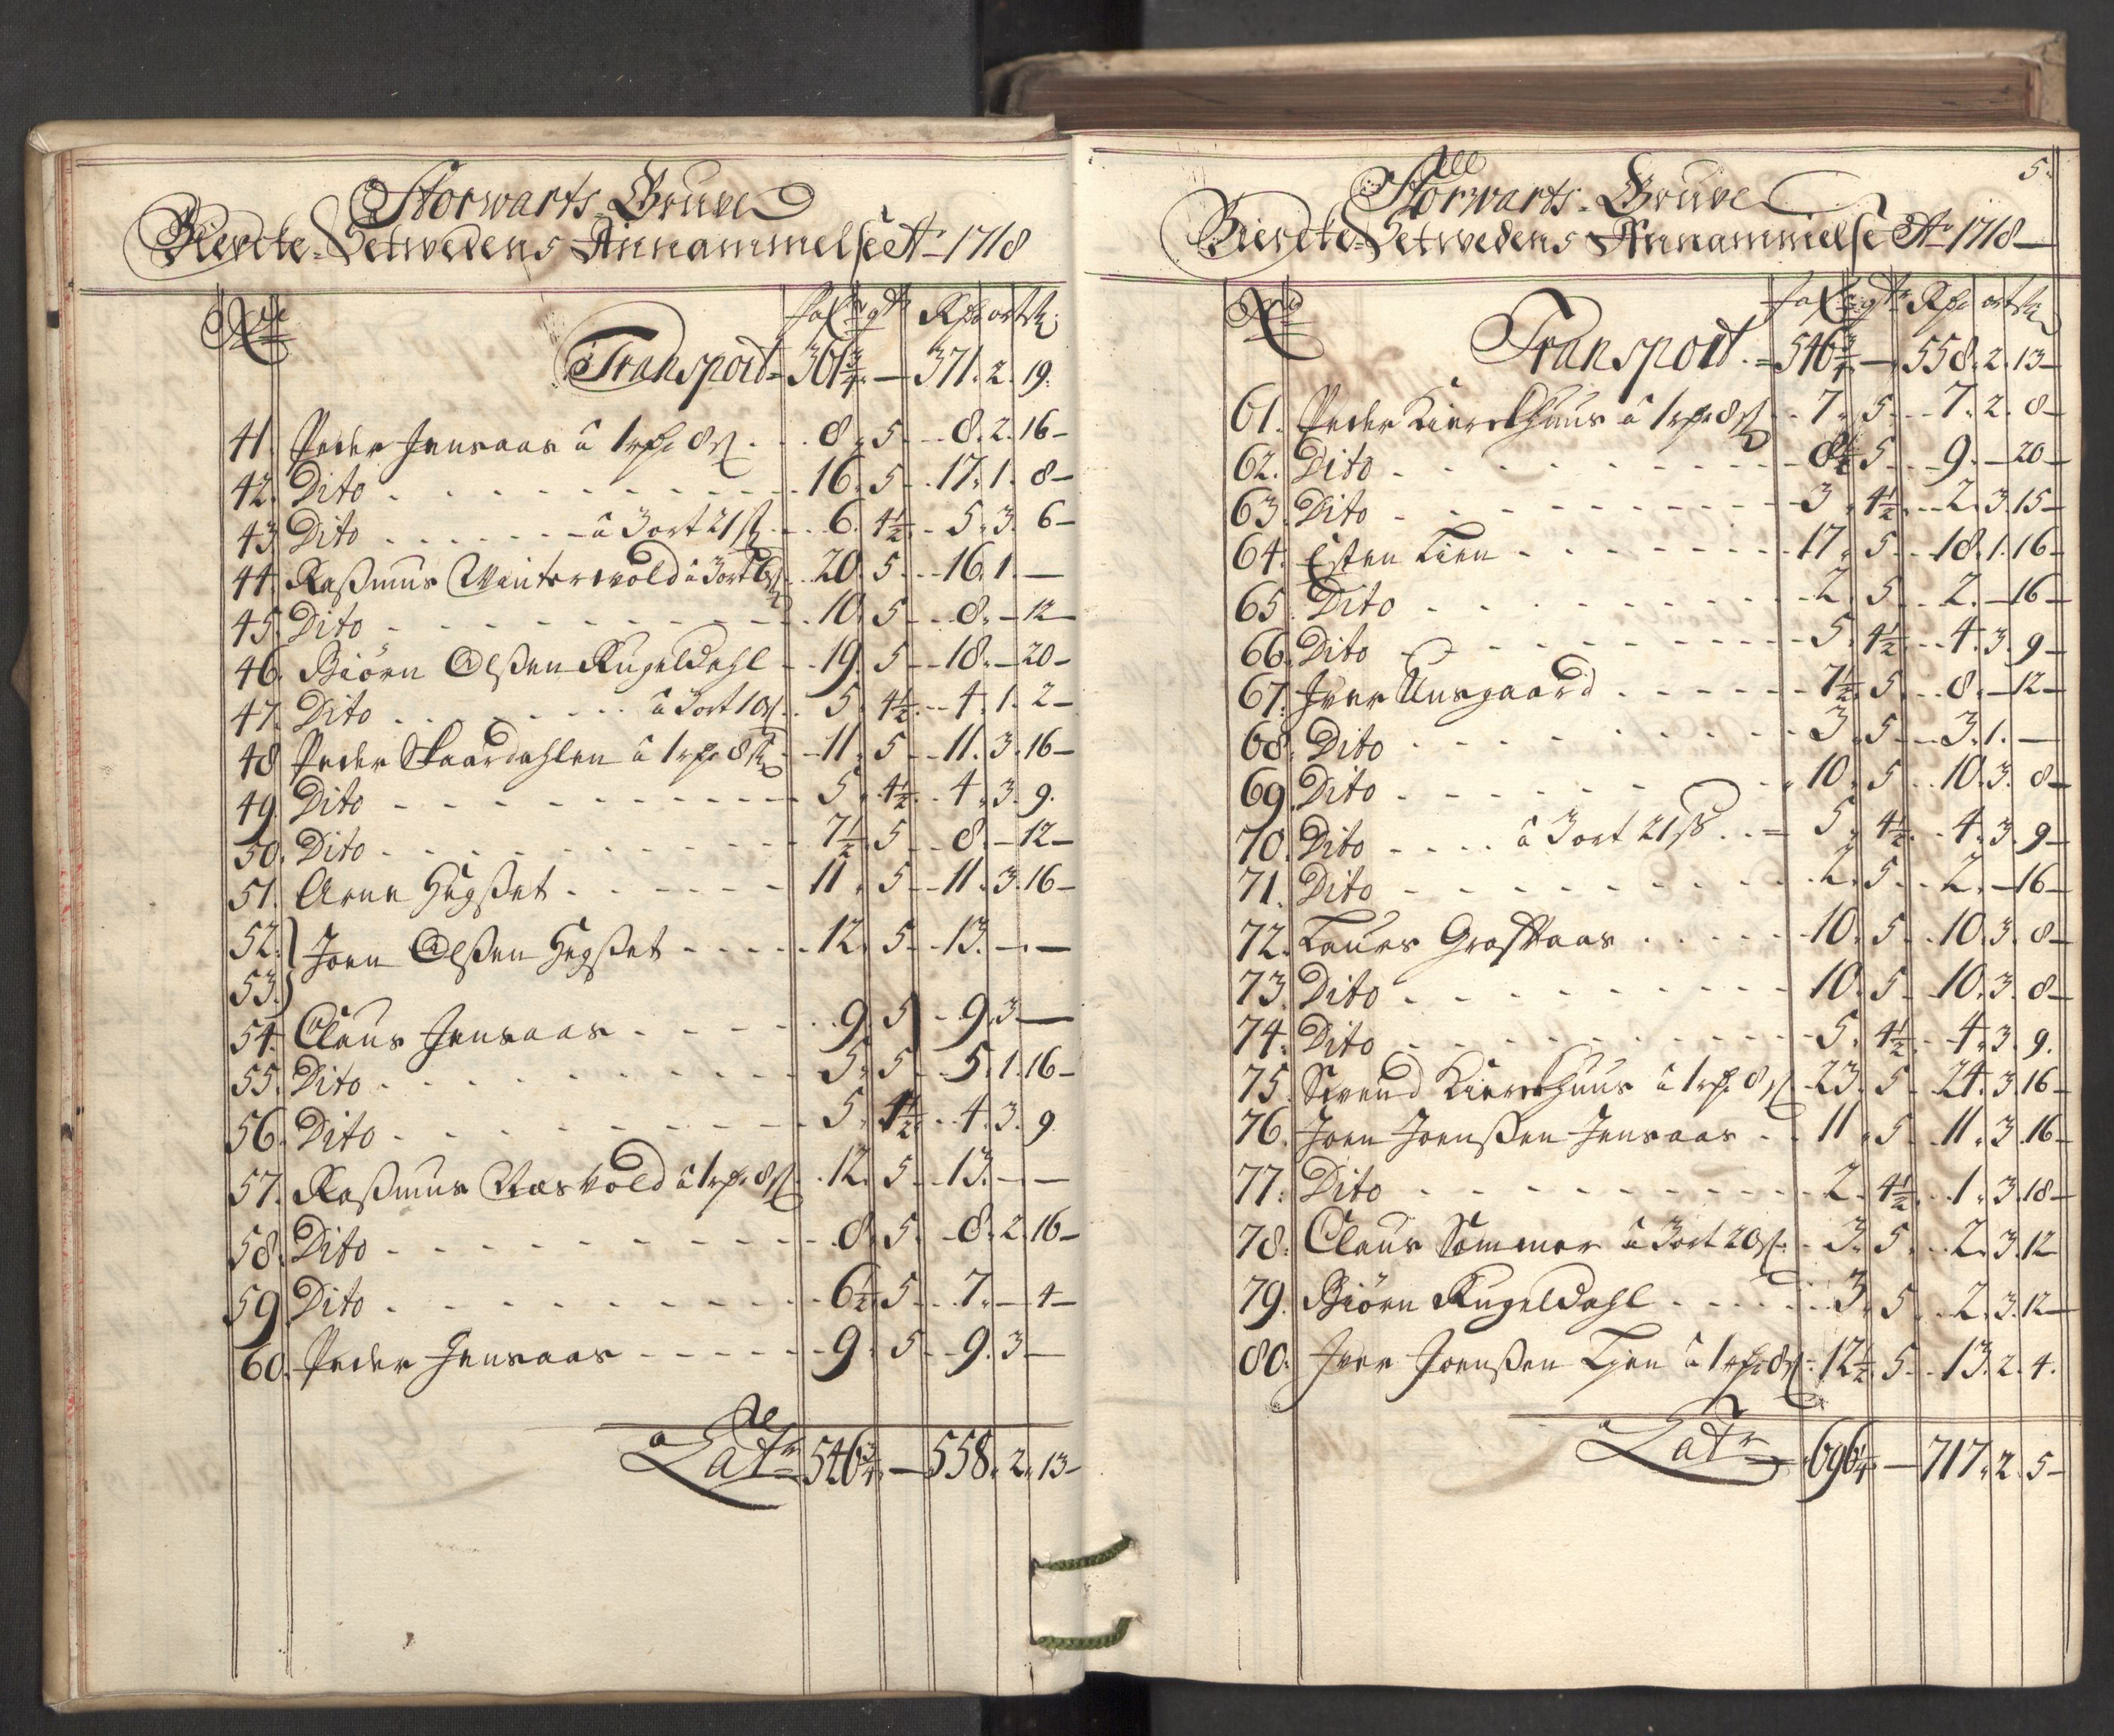 Storwarts Gruve
Biercke-Setwedens Annammelse Ao 1718
No fafn: qtr Rdr ort sk:
Transport 361¾ — 371. 2. 19.
41. Peder Jensaas â 1 rdr 8 sk 8. 5. 8. 2. 16
42. Dito 16. 5. 17. 1. 8
43. Dito â 3 ort 21 sk 6. 4½ 5. 3. 6
44. Rasmus Wintervold â 3 ort 6 sk 20. 5. 16. 1. —
45. Dito 10. 5. 8. — 12
46. Biörn Olßen Kugeldahl 19. 5. 18. — 20
47. Dito â 3 ort 10 sk 5. 4½ 4. 1. 2
48. Peder Skaardahlen â 1 rdr 8 sk 11. 5. 11. 3. 16
49. Dito 5. 4½ 4. 3. 9.
50. Dito 7½ 5. 8. — 12
51. Arne Hegßet 11. 5. 11. 3. 16
52. } Joen Olßen Hegßet 12. 5. 13. — —
53. }
54. Claus Jensaas 9. 5. 9. 3 —
55. Dito 5. 5. 5. 1. 16
56. Dito 5. 4½ 4. 3. 9
57. Raßmus Næsvold â 1 rdr 8 sk 12. 5. 13. — —
58. Dito 8. 5. 8. 2. 16
59. Dito 6½ 5. 7. — 4
60. Peder Jensaas 9. 5. 9. 3 —
Latr 546¾ — 558. 2. 13
5.
Storwarts Gruve
Biercke-Setwedens Annammelse Ao 1718
No fafn: qtr Rdr ort sk
Transport 546¾ — 558. 2. 13
61. Peder Kierckhuus â 1 rdr 8 sk 7. 5. 7. 2. 8
62. Dito 8½ 5. 9. — 20
63. Dito 3. 4½ 2. 3. 15
64. Esten Lien 17. 5. 18. 1. 16
65. Dito 2. 5. 2. — 16
66. Dito 5. 4½ 4. 3. 9
67. Iver Aasgaard 7½ 5. 8. — 12
68. Dito 3. 5. 3. 1. —
69. Dito 10. 5. 10. 3. 8
70. Dito â 3 ort 21 sk 5. 4½ 4. 3. 9
71. Dito 2. 5. 2. — 16
72. Laurs Graftaas 10. 5. 10. 3. 8
73. Dito 10. 5. 10. 3. 8
74. Dito 5. 4½ 4. 3. 9.
75. Svend Kierckhuus â 1 rdr 8 sk 23. 5. 24. 3. 16
76. Joen Joenßen Jensaas 11. 5. 11. 3. 16
77. Dito 2. 4½ 1. 3. 18
78. Claus Sommer â 3 ort 20 sk 3. 5. 2. 3. 12
79. Biörn Kugeldahl 3. 5. 2. 3. 12
80. Iver Joenßen Ljen â 1 rdr 8 sk 12½ 5. 13. 2. 4.
Latr 696¼ — 717. 2. 5